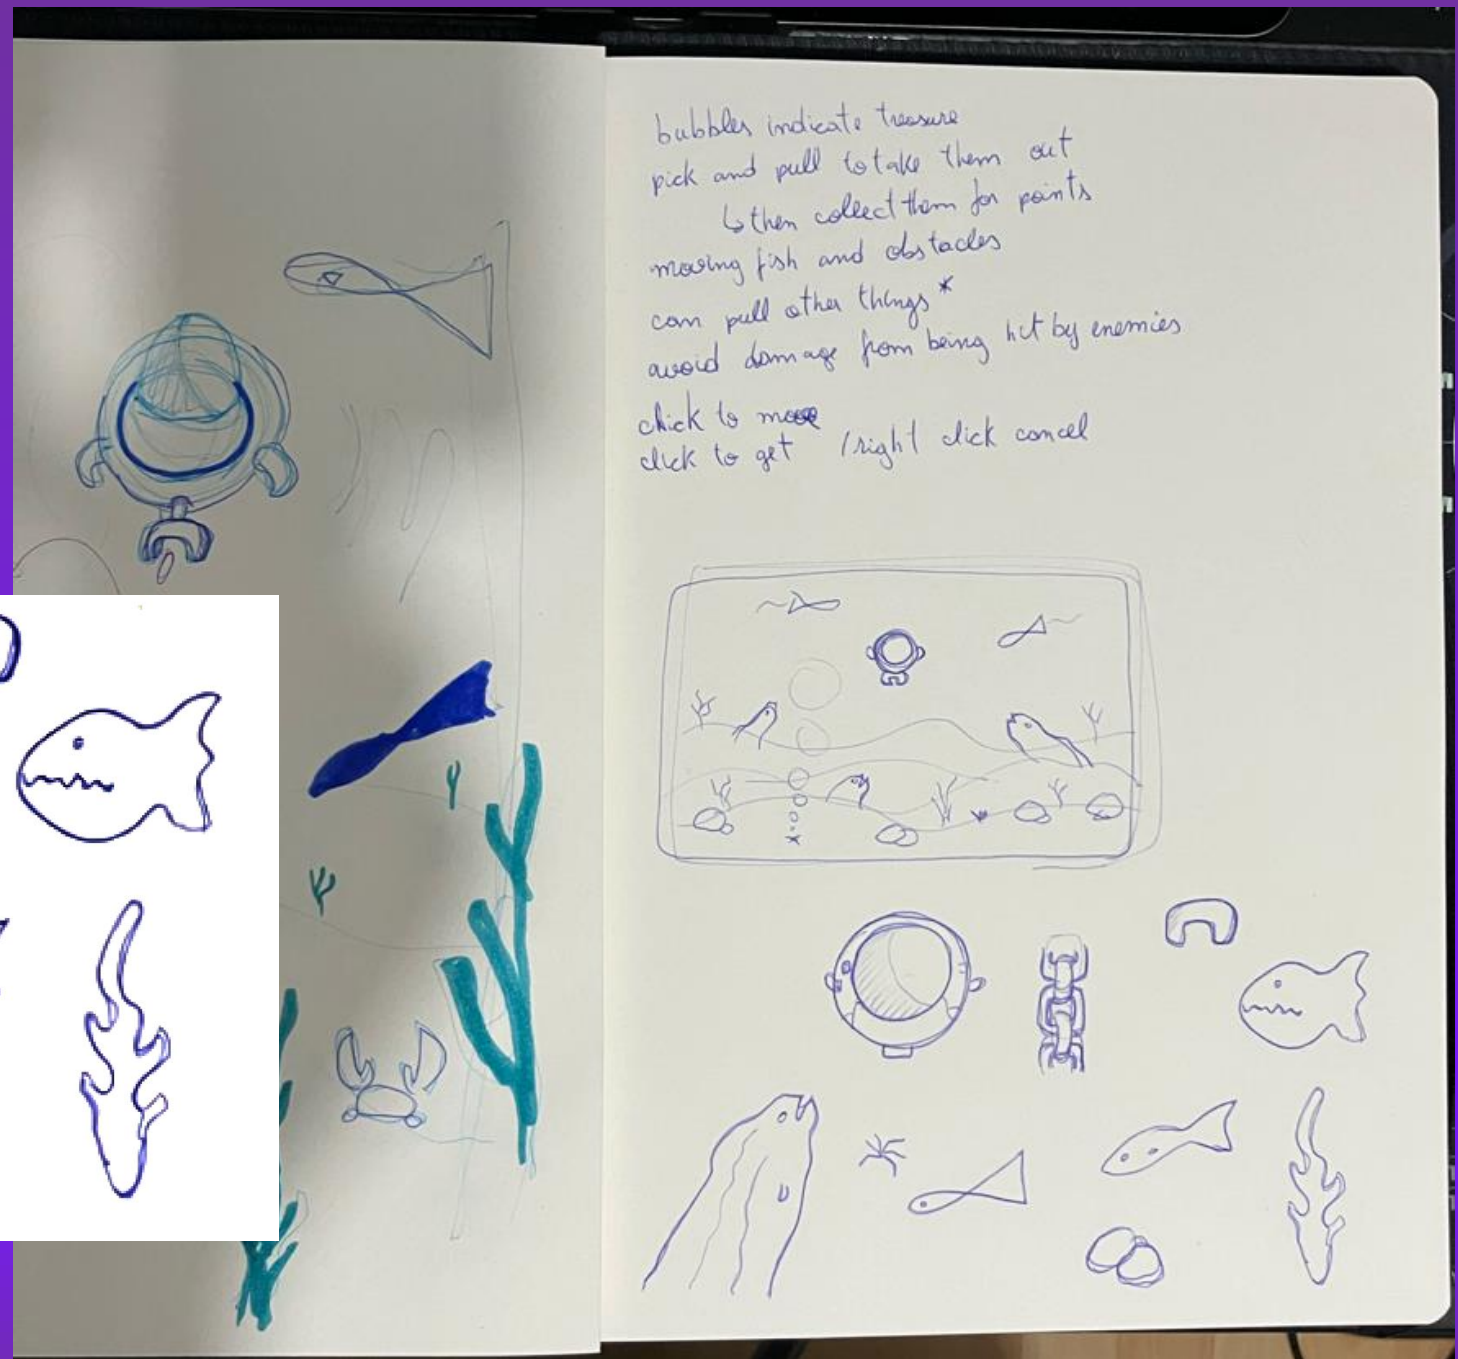 bubbles indicate treasure
pick and pull to take them out
↳ then collect them for points
moving fish and obstacles
can pull other things *
avoid damage from being hit by enemies
click to move
click to get / right click cancel